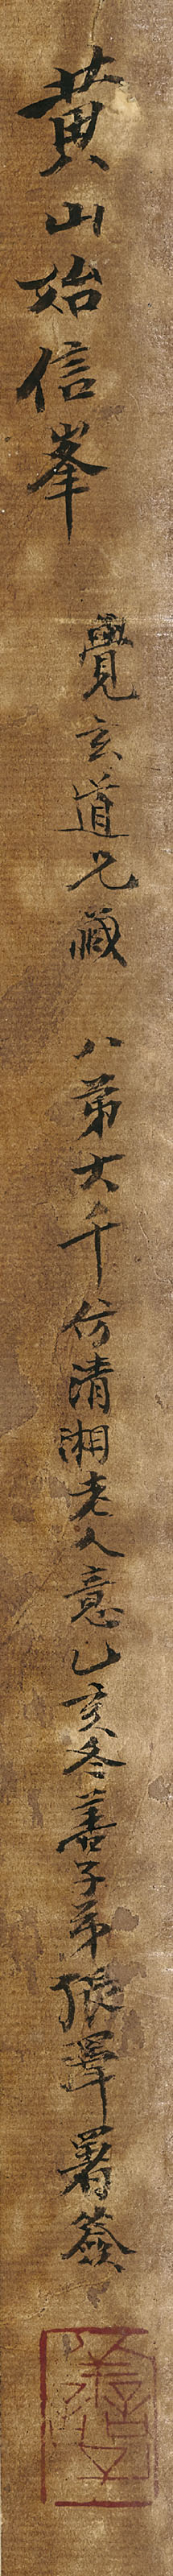 黄山始信峯
覺玄道兄藏
八弟大千仿清湘老人意乙亥冬善子弟張澤署簽